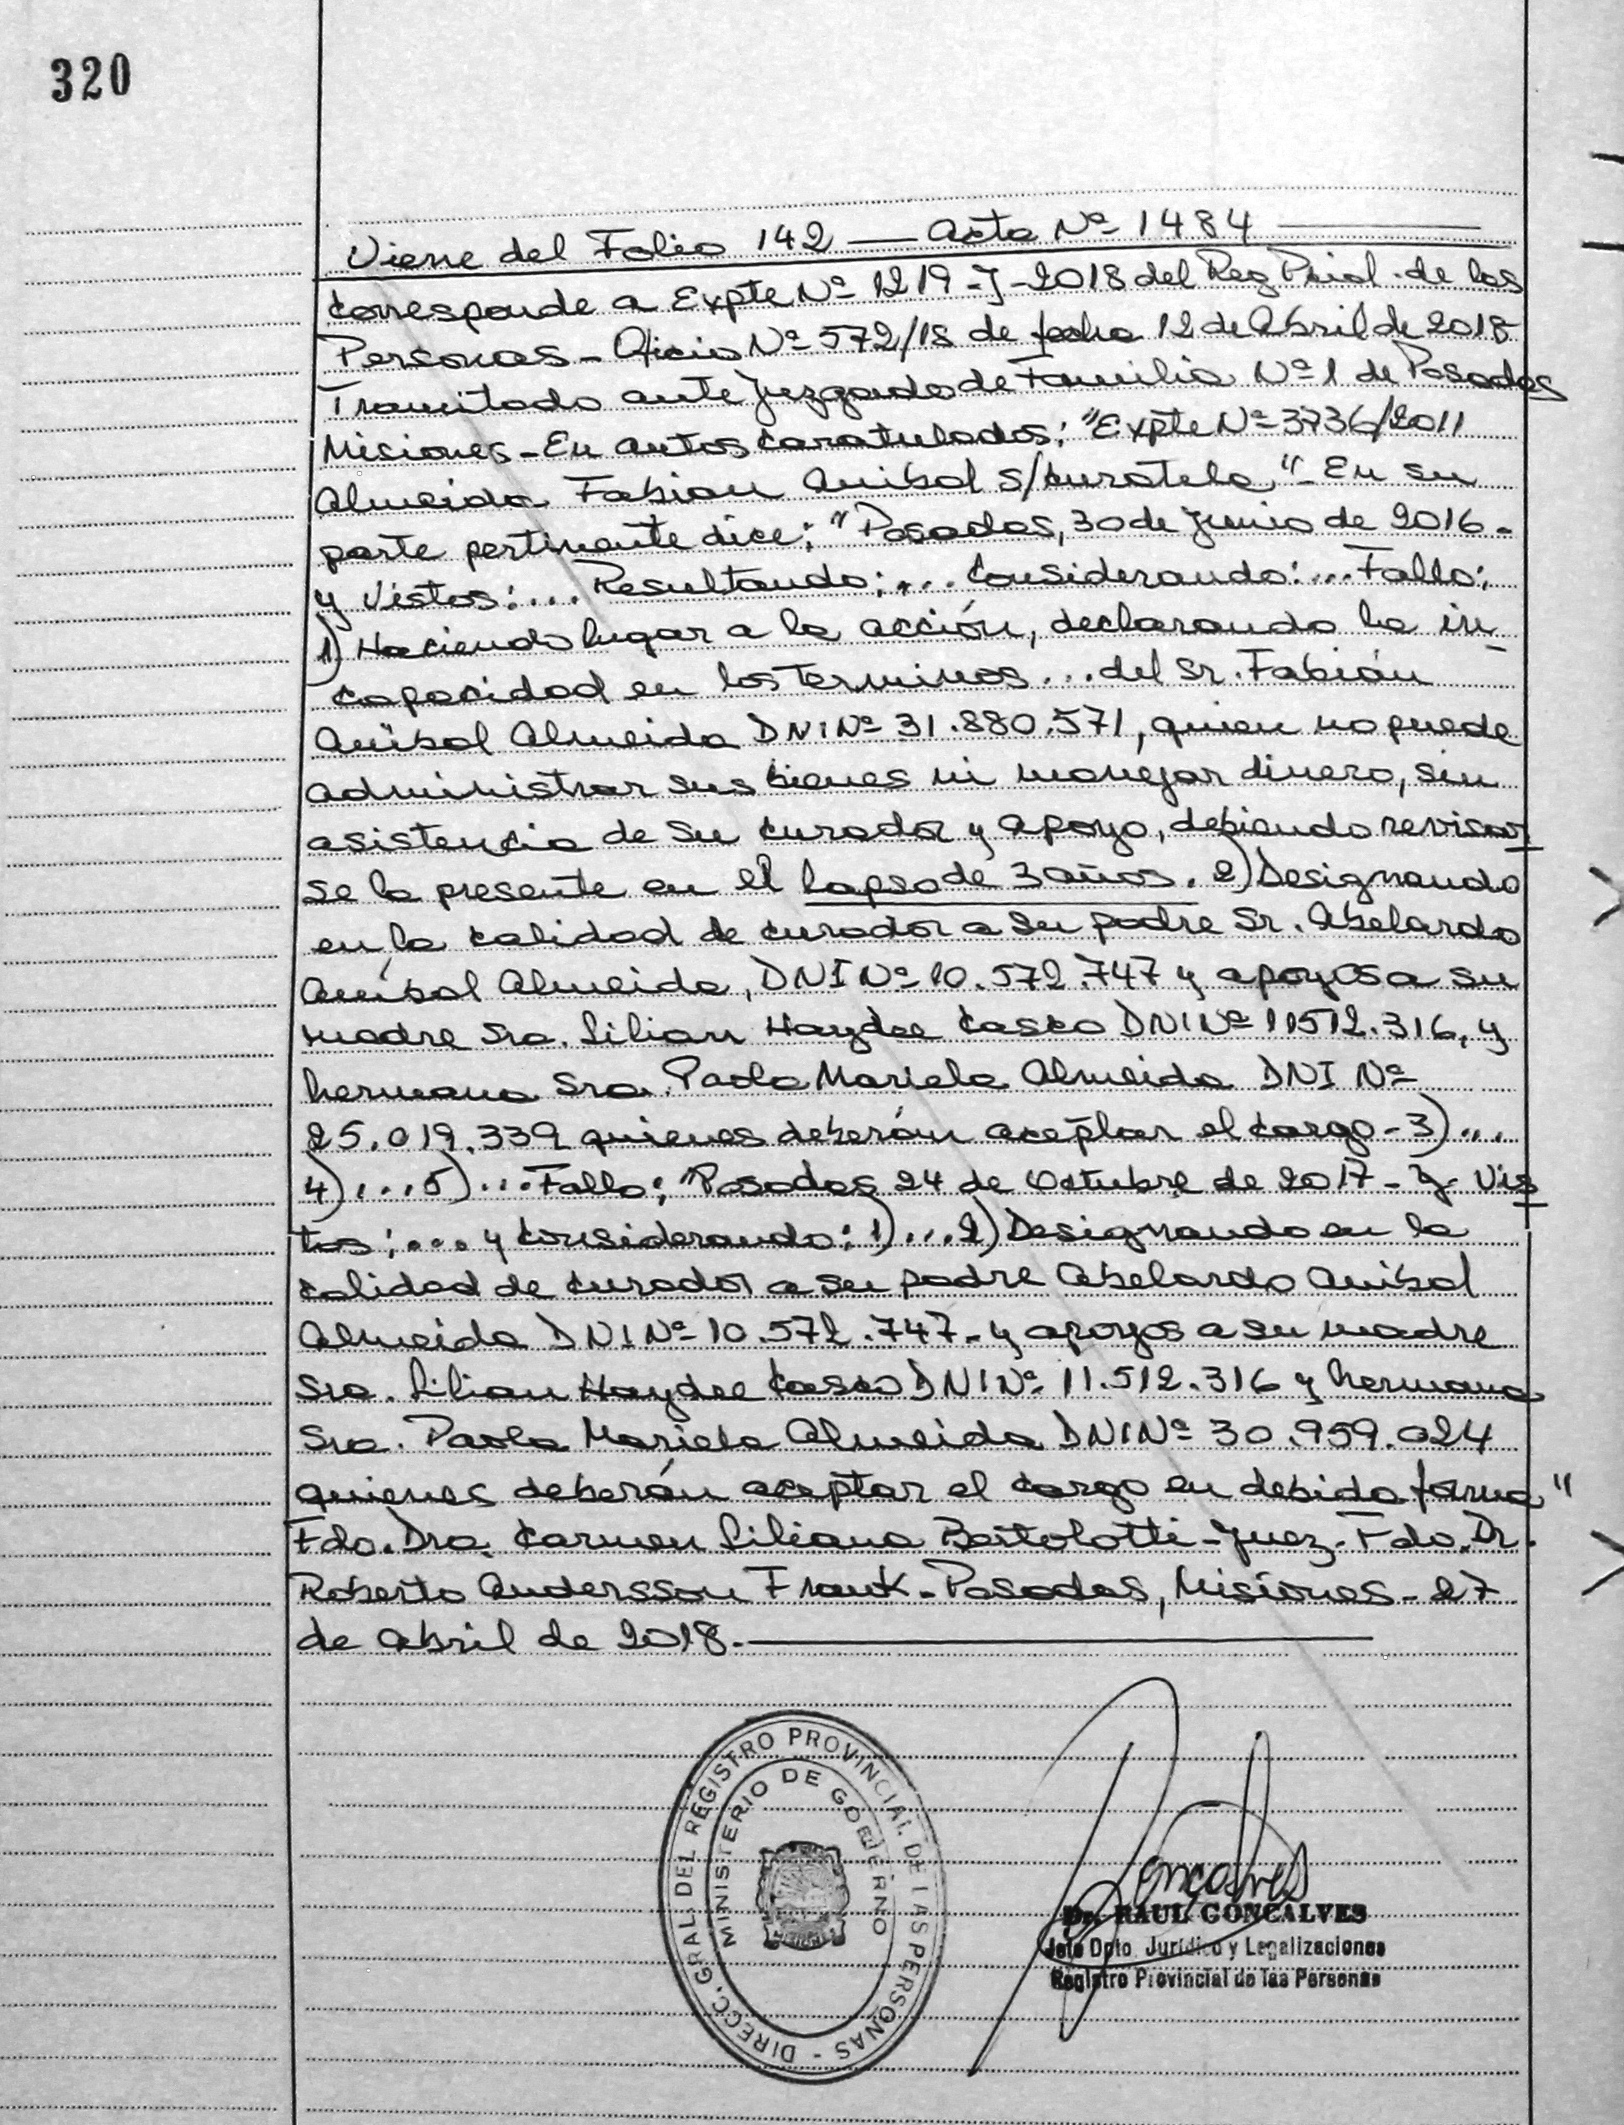 320
Viene del Folio 142 — Acta Nº 1484
Corresponde a Expte Nº 1219-J-2018 del Reg Pcial. de las
Personas - Oficio Nº 572/18 de fecha 12 de Abril de 2018
Tramitado ante Juzgado de Familia Nº 1 de Posadas
Misiones - En autos caratulados: "Expte Nº 3736/2011
Almeida Fabian Anibal S/curatela," - En su
parte pertinente dice: "Posadas, 30 de Junio de 2016-
y Vistos:... Resultando:... Considerando:... Fallo:
1) Haciendo lugar a la acción, declarando la in-
capacidad en los Terminos... del Sr. Fabián
Aníbal Almeida DNI Nº 31.880.571, quien no puede
administrar sus bienes ni manejar dinero, sin
asistencia de su curador y apoyo, debiendo revisar
se la presente en el lapso de 3 años. 2) Designando
en la calidad de curador a su padre Sr. Abelardo
Aníbal Almeida, DNI Nº 10.572.747 y apoyos a su
madre Sra. Lilian Haydee Casco DNI Nº 11512.316, y
hermana Sra. Paola Mariela Almeida DNI Nº
25.019.339 quienes deberán aceptar el cargo - 3)...
4)...5)...Fallo: "Posadas 24 de Octubre de 2017 - Y Vis
tos:... y Considerando: 1)...2) Designando en la
calidad de curador a su padre Abelardo Anibal
Almeida DNI Nº 10.572.747 - y apoyos a su madre
Sra. Lilian Haydee Casco DNI Nº 11.512.316 y hermana
Sra. Paola Mariela Almeida DNI Nº 30.959.024
quienes deberán aceptar el cargo en debida forma"
Fdo. Dra. Carmen Liliana Bortolotti - Juez - Fdo. Dr.
Roberto Andersson Frank - Posadas, Misiones - 27
de Abril de 2018.
DIRECC. GRAL. DEL REGISTRO PROVINCIAL DE LAS PERSONAS -
MINISTERIO DE GOBIERNO
Goncalves
Dr. RAUL GONCALVES
Jefe Dpto. Jurídico y Legalizaciones
Registro Provincial de las Personas